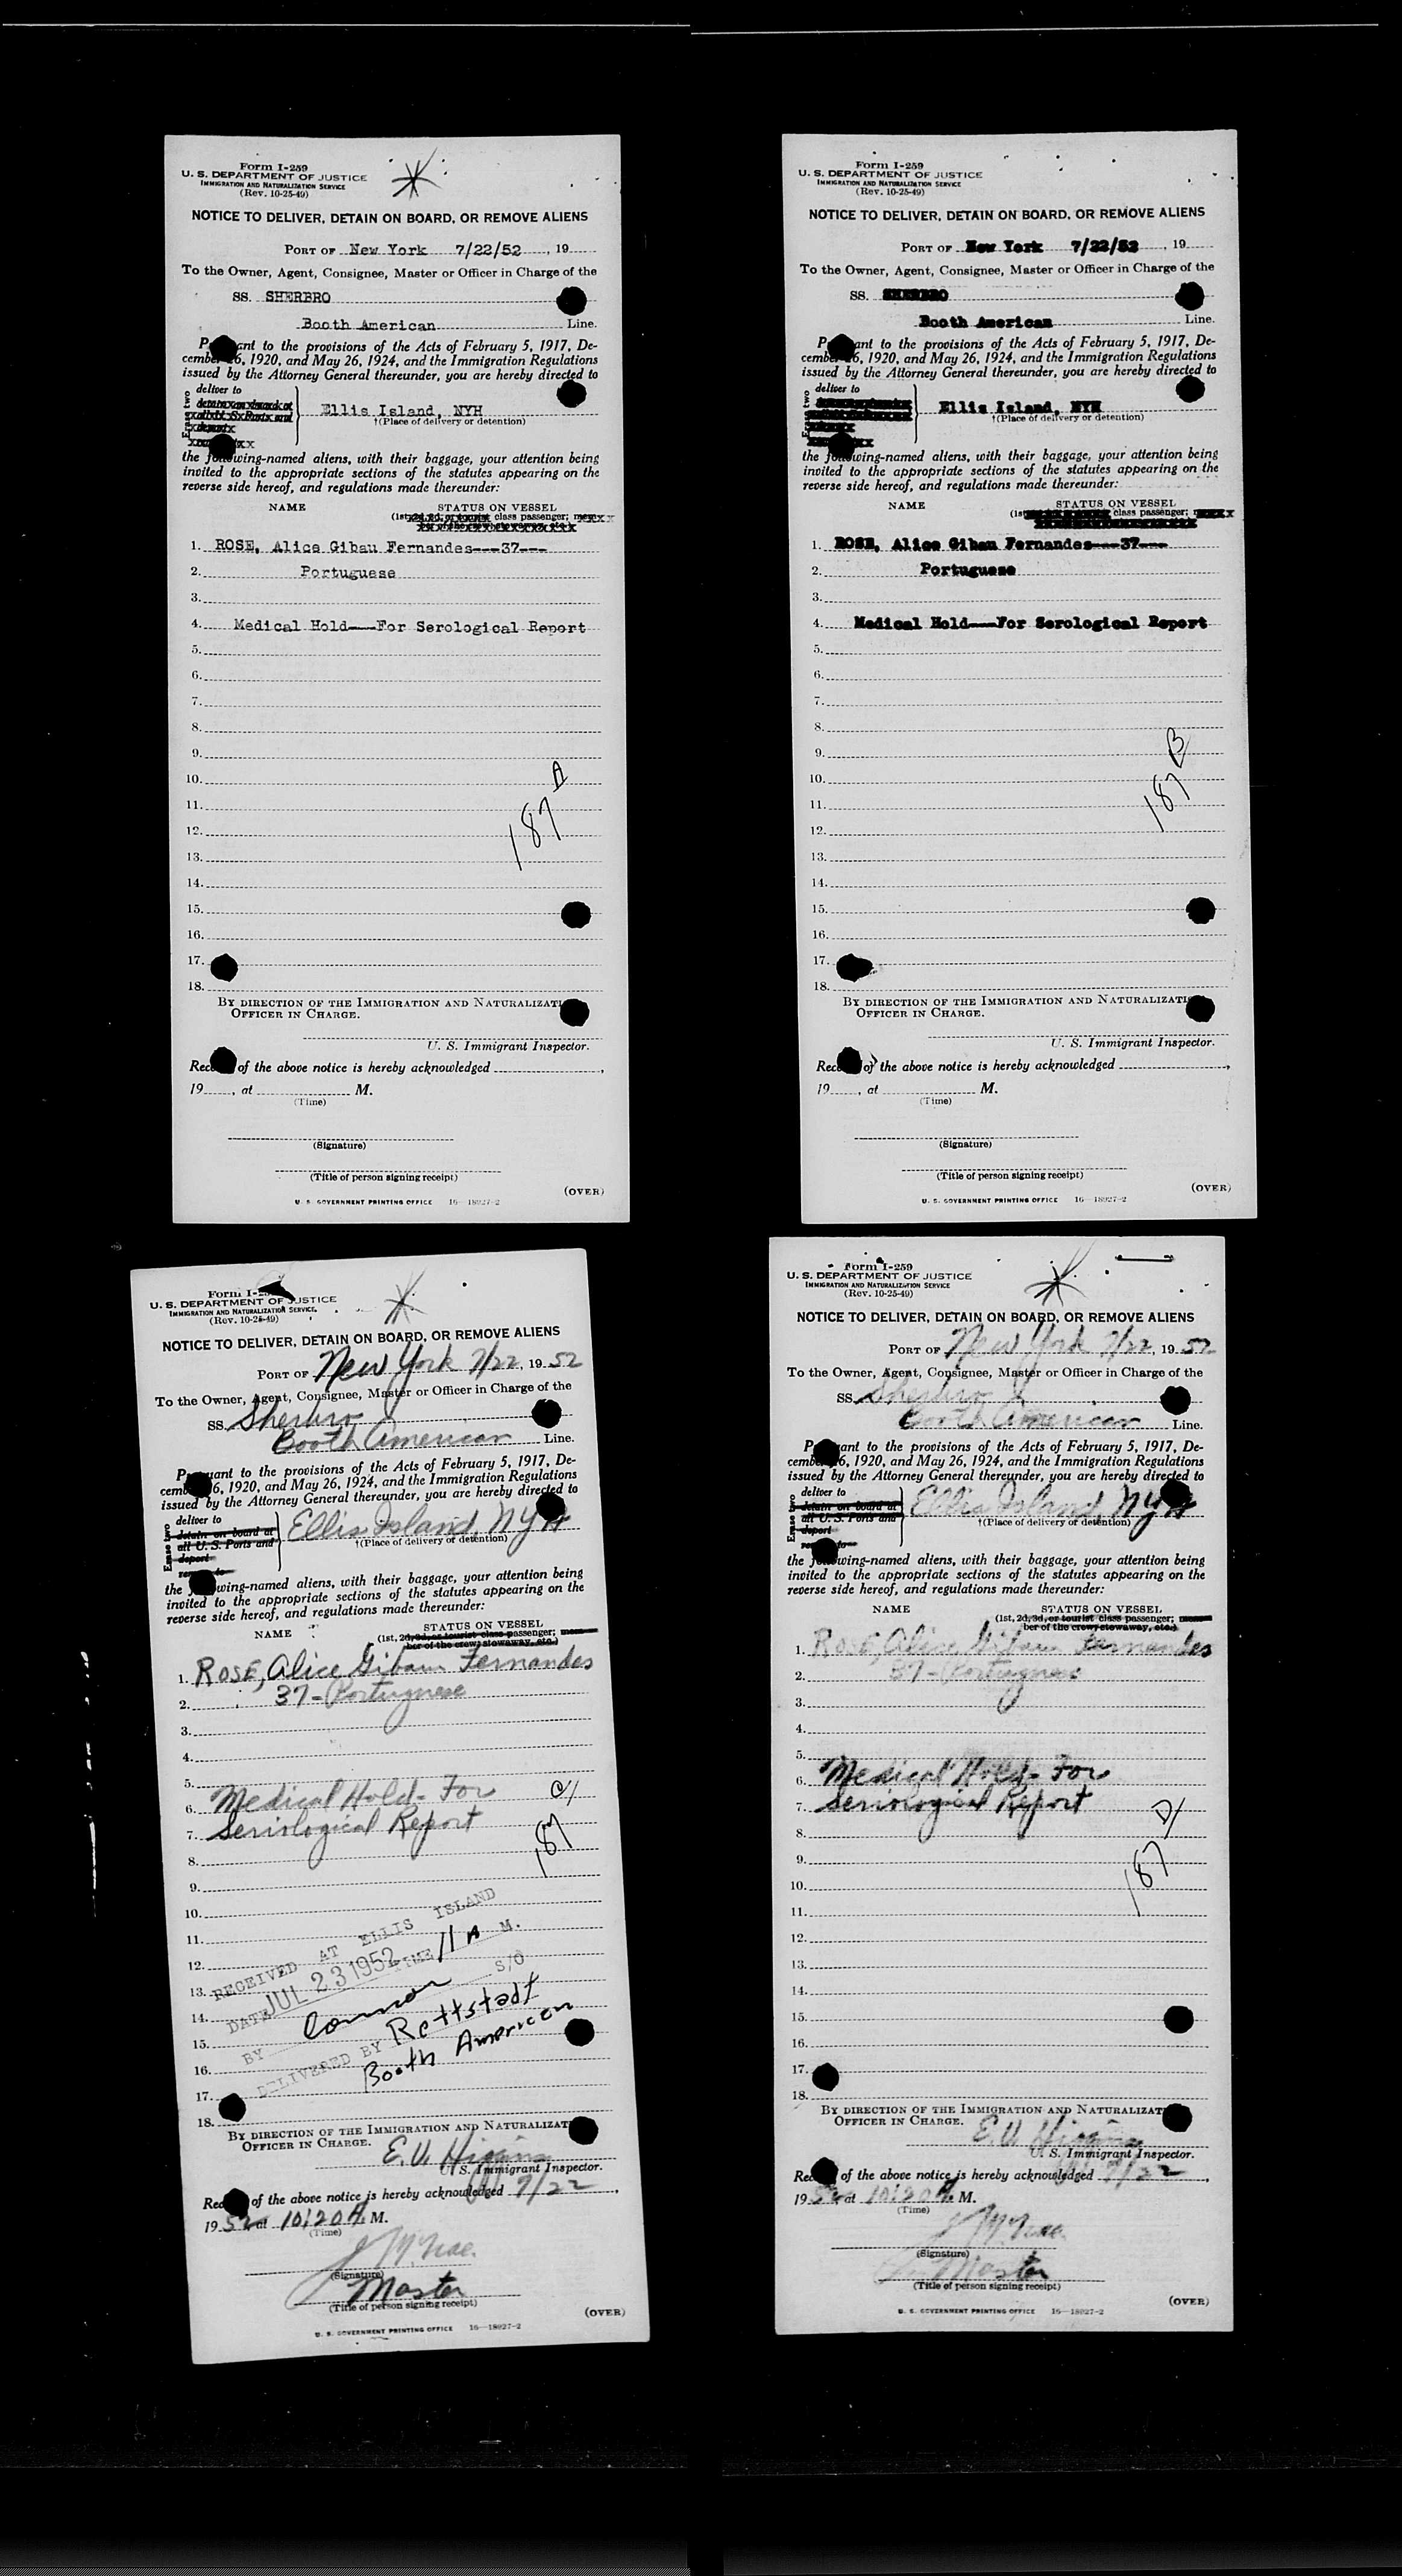 Form I-259
U. S. DEPARTMENT OF JUSTICE
IMMIGRATION AND NATURALIZATION SERVICE
(Rev. 10-25-49)
NOTICE TO DELIVER, DETAIN ON BOARD, OR REMOVE ALIENS
PORT OF New York 7/22/52, 19
To the Owner, Agent, Consignee, Master or Officer in Charge of the
SS. SHERBRO
Booth American Line.
P ant to the provisions of the Acts of February 5, 1917, De-
cember 6, 1920, and May 26, 1924, and the Immigration Regulations
issued by the Attorney General thereunder, you are hereby directed to
deliver to
Ellis Island, NYH
†(Place of delivery or detention)
the following-named aliens, with their baggage, your attention being
invited to the appropriate sections of the statutes appearing on the
reverse side hereof, and regulations made thereunder:
NAME STATUS ON VESSEL
(1st class passenger;
1. ROSE, Alice Gibau Fernandes---37---
2. Portuguese
3.
4. Medical Hold---For Serological Report
5.
6.
7.
8.
9.
10. A
11. 187
12.
13.
14.
15.
16.
17.
18.
BY DIRECTION OF THE IMMIGRATION AND NATURALIZATI
OFFICER IN CHARGE.
U. S. Immigrant Inspector.
Rece of the above notice is hereby acknowledged ,
19 , at M.
(Time)
(Signature)
(Title of person signing receipt)
(OVER)
U. S. GOVERNMENT PRINTING OFFICE 16—18927-2
Form I-259
U. S. DEPARTMENT OF JUSTICE
IMMIGRATION AND NATURALIZATION SERVICE
(Rev. 10-25-49)
NOTICE TO DELIVER, DETAIN ON BOARD, OR REMOVE ALIENS
PORT OF New York 7/22/52, 19
To the Owner, Agent, Consignee, Master or Officer in Charge of the
SS. SHERBRO
Booth American Line.
P ant to the provisions of the Acts of February 5, 1917, De-
cember 6, 1920, and May 26, 1924, and the Immigration Regulations
issued by the Attorney General thereunder, you are hereby directed to
deliver to
Ellis Island, NYH
†(Place of delivery or detention)
the following-named aliens, with their baggage, your attention being
invited to the appropriate sections of the statutes appearing on the
reverse side hereof, and regulations made thereunder:
NAME STATUS ON VESSEL
(1st class passenger;
1. ROSE, Alice Gibau Fernandes---37---
2. Portuguese
3.
4. Medical Hold---For Serological Report
5.
6.
7.
8.
9. B
10. 187
11.
12.
13.
14.
15.
16.
17.
18.
BY DIRECTION OF THE IMMIGRATION AND NATURALIZATI
OFFICER IN CHARGE.
U. S. Immigrant Inspector.
Rece of the above notice is hereby acknowledged ,
19 , at M.
(Time)
(Signature)
(Title of person signing receipt)
(OVER)
U. S. GOVERNMENT PRINTING OFFICE 16—18927-2
Form I-2
U. S. DEPARTMENT OF JUSTICE
IMMIGRATION AND NATURALIZATION SERVICE
(Rev. 10-25-49)
NOTICE TO DELIVER, DETAIN ON BOARD, OR REMOVE ALIENS
PORT OF New York 7/22, 19 52
To the Owner, Agent, Consignee, Master or Officer in Charge of the
SS. Sherbro
Booth American Line.
P uant to the provisions of the Acts of February 5, 1917, De-
cem 6, 1920, and May 26, 1924, and the Immigration Regulations
issued by the Attorney General thereunder, you are hereby directed to
Erase two
deliver to
detain on board at
all U. S. Ports and
deport
Ellis Island, NYH
†(Place of delivery or detention)
the following-named aliens, with their baggage, your attention being
invited to the appropriate sections of the statutes appearing on the
reverse side hereof, and regulations made thereunder:
NAME STATUS ON VESSEL
(1st, 2d, 3d, or tourist class passenger; mem-
ber of the crew, stowaway, etc.)
1. ROSE, Alice Gibau Fernandes
2. 37 - Portuguese
3.
4.
5.
6. Medical Hold - For C/
7. Seriological Report
8. 187
9.
10.
11.
12.
13.
14.
15.
16.
17.
18.
RECEIVED AT ELLIS ISLAND
DATE JUL 23 1952 TIME 11 A M.
BY Connor S/O
DELIVERED BY Rettstadt
Booth American
BY DIRECTION OF THE IMMIGRATION AND NATURALIZAT
OFFICER IN CHARGE.
E. V. Higgins
U. S. Immigrant Inspector.
Rec of the above notice is hereby acknowledged 7/22,
19 52 at 10:20 A. M.
(Time)
(Signature)
Master
(Title of person signing receipt)
(OVER)
U. S. GOVERNMENT PRINTING OFFICE 16—18927-2
Form I-259
U. S. DEPARTMENT OF JUSTICE
IMMIGRATION AND NATURALIZATION SERVICE
(Rev. 10-25-49)
NOTICE TO DELIVER, DETAIN ON BOARD, OR REMOVE ALIENS
PORT OF New York 7/22, 19 52
To the Owner, Agent, Consignee, Master or Officer in Charge of the
SS. Sherbro
Booth American Line.
P uant to the provisions of the Acts of February 5, 1917, De-
cemb 6, 1920, and May 26, 1924, and the Immigration Regulations
issued by the Attorney General thereunder, you are hereby directed to
Erase two
deliver to
detain on board at
all U. S. Ports and
deport
Ellis Island, NYH
†(Place of delivery or detention)
the following-named aliens, with their baggage, your attention being
invited to the appropriate sections of the statutes appearing on the
reverse side hereof, and regulations made thereunder:
NAME STATUS ON VESSEL
(1st, 2d, 3d, or tourist class passenger; mem-
ber of the crew, stowaway, etc.)
1. Rose, Alice Gibau Fernandes
2. 37 - Portuguese
3.
4.
5.
6. Medical Hold - For
7. Seriological Report D/
8.
9. 187
10.
11.
12.
13.
14.
15.
16.
17.
18.
BY DIRECTION OF THE IMMIGRATION AND NATURALIZAT
OFFICER IN CHARGE.
E. V. Higgins
U. S. Immigrant Inspector.
Rec of the above notice is hereby acknowledged 7/22,
19 52 at 10:20 A. M.
(Time)
(Signature)
Master
(Title of person signing receipt)
(OVER)
U. S. GOVERNMENT PRINTING OFFICE 16—18927-2